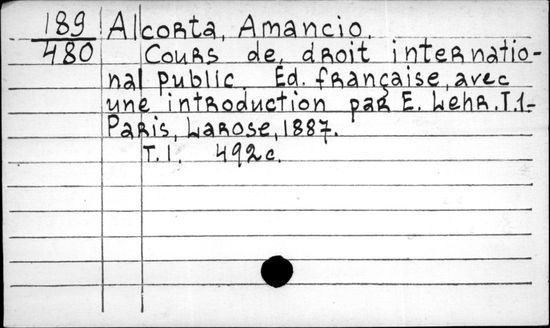 189 Alcorta, Amancio.
480 Cours de droit internatio-
nal public. Ed. française, avec
une introduction par E. Lehr. T.1-
Paris, Larose, 1887.
T.1. 492c.